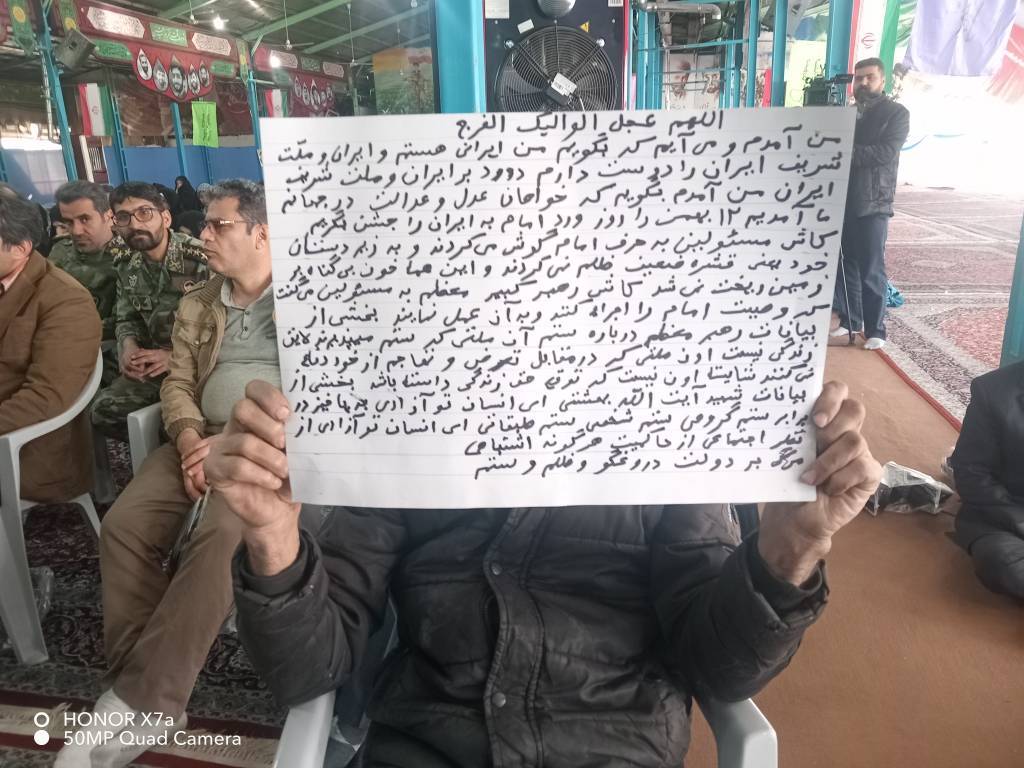 اللهم عجل الولیک الفرج
من آمدم و می آیم که بگویم من ایرانی هستم و ایران و ملت
شریف ایران را دوست دارم درود بر ایران و ملت شریف
ایران من آمدم بگویم که خواهان عدل و عدالت در جهانه
ما آمدیم ۱۲ بهمن را روز ورد امام به ایران را جشن بگیریم
کاش مسئولین به حرف امام گوش می کردند و به زیر دستان
خود یعنی قشره ضعیف ظلم نمی کردند و این هما خون بی گناه بر
زمین ریخت نمی شد کاش رهبر کبیر معظم به مسئولین می گفت
که وصیت امام را اجراء کنند و به آن عمل نمایند بخشی از
بیانات رهبر معظم درباره ستم آن ملتی که ستم میپذیرم لایق
زندگی نیست اون ملتی که در مقابل تعرض و تهاجم از خود دفاع
نمی کنند شایسته اون نیست که توقع حق زندگی داشته باشد بخشی از
بیانات شهید آیت الله بهشتی ای انسان تو آزادی بپاخیز در
برابر ستم گروهی ستم شخصی ستم طبقاتی ای انسان تو آزادی از
نظر اجتماعی از حاکمیت هرگونه اشتباهی
مرگ بر دولت دروغگو و ظلم و ستم
HONOR X7a
50MP Quad Camera